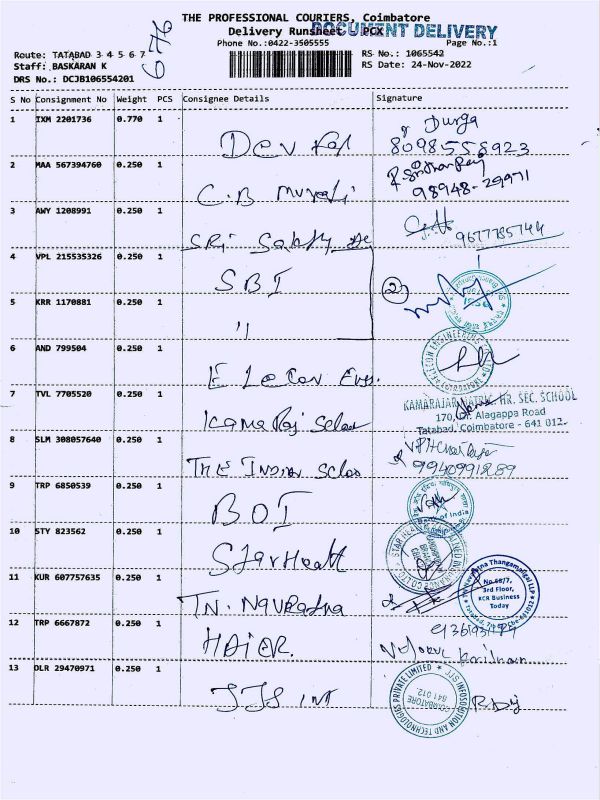 THE PROFESSIONAL COURIERS, Coimbatore
Delivery Runsheet - PCX
DOCUMENT DELIVERY
Phone No.:0422-3505555
Page No.:1
676
Route: TATABAD 3 4 5 6 7
RS No.: 1065542
Staff: BASKARAN K
RS Date: 24-Nov-2022
DRS No.: DCJB106554201
S No Consignment No Weight PCS Consignee Details Signature
1 IXM 2201736 0.770 1
Durga
Dev 8098558923
2 MAA 567394760 0.250 1
C.B Murali 98948-29971
3 AWY 1208991 0.250 1
Sri 9677785744
4 VPL 215535326 0.250 1
SBI 2
5 KRR 1170881 0.250 1
"
6 AND 799504 0.250 1
E Lecon
7 TVL 7705520 0.250 1
KAMARAJAR MATRIC. HR. SEC. SCHOOL
170, Dr. Alagappa Road
Tatabad, Coimbatore - 641 012.
Kamaraj
8 SLM 308057640 0.250 1
The Indian 9940991889
9 TRP 6850539 0.250 1
BOI
Bank of India
10 STY 823562 0.250 1
Star Health
11 KUR 607757635 0.250 1
No.66/7,
3rd Floor,
KCR Business
Today
TN. Navratna
12 TRP 6667872 0.250 1
HAIER.
13 DLR 29470971 0.250 1
JJS INFOSOLUTION AND TECHNOLOGIES PRIVATE LIMITED
COIMBATORE
641 012
JJS